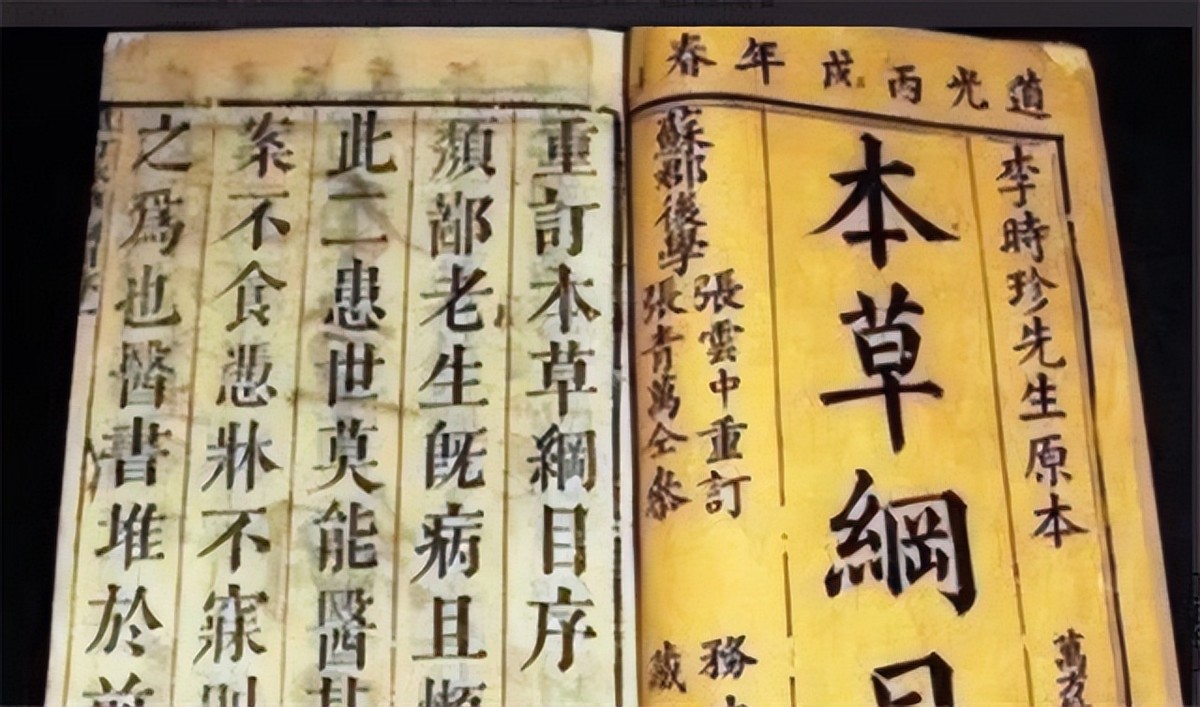 道光丙戌年春
李時珍先生原本
萬方
本草綱目
張雲中重訂
蘇郡後學
張青萬仝參
務
藏
重訂本草綱目序
鄙老生旣病且
此二患世莫能醫其
案不食憑牀不寐則
之爲也醫書堆於前